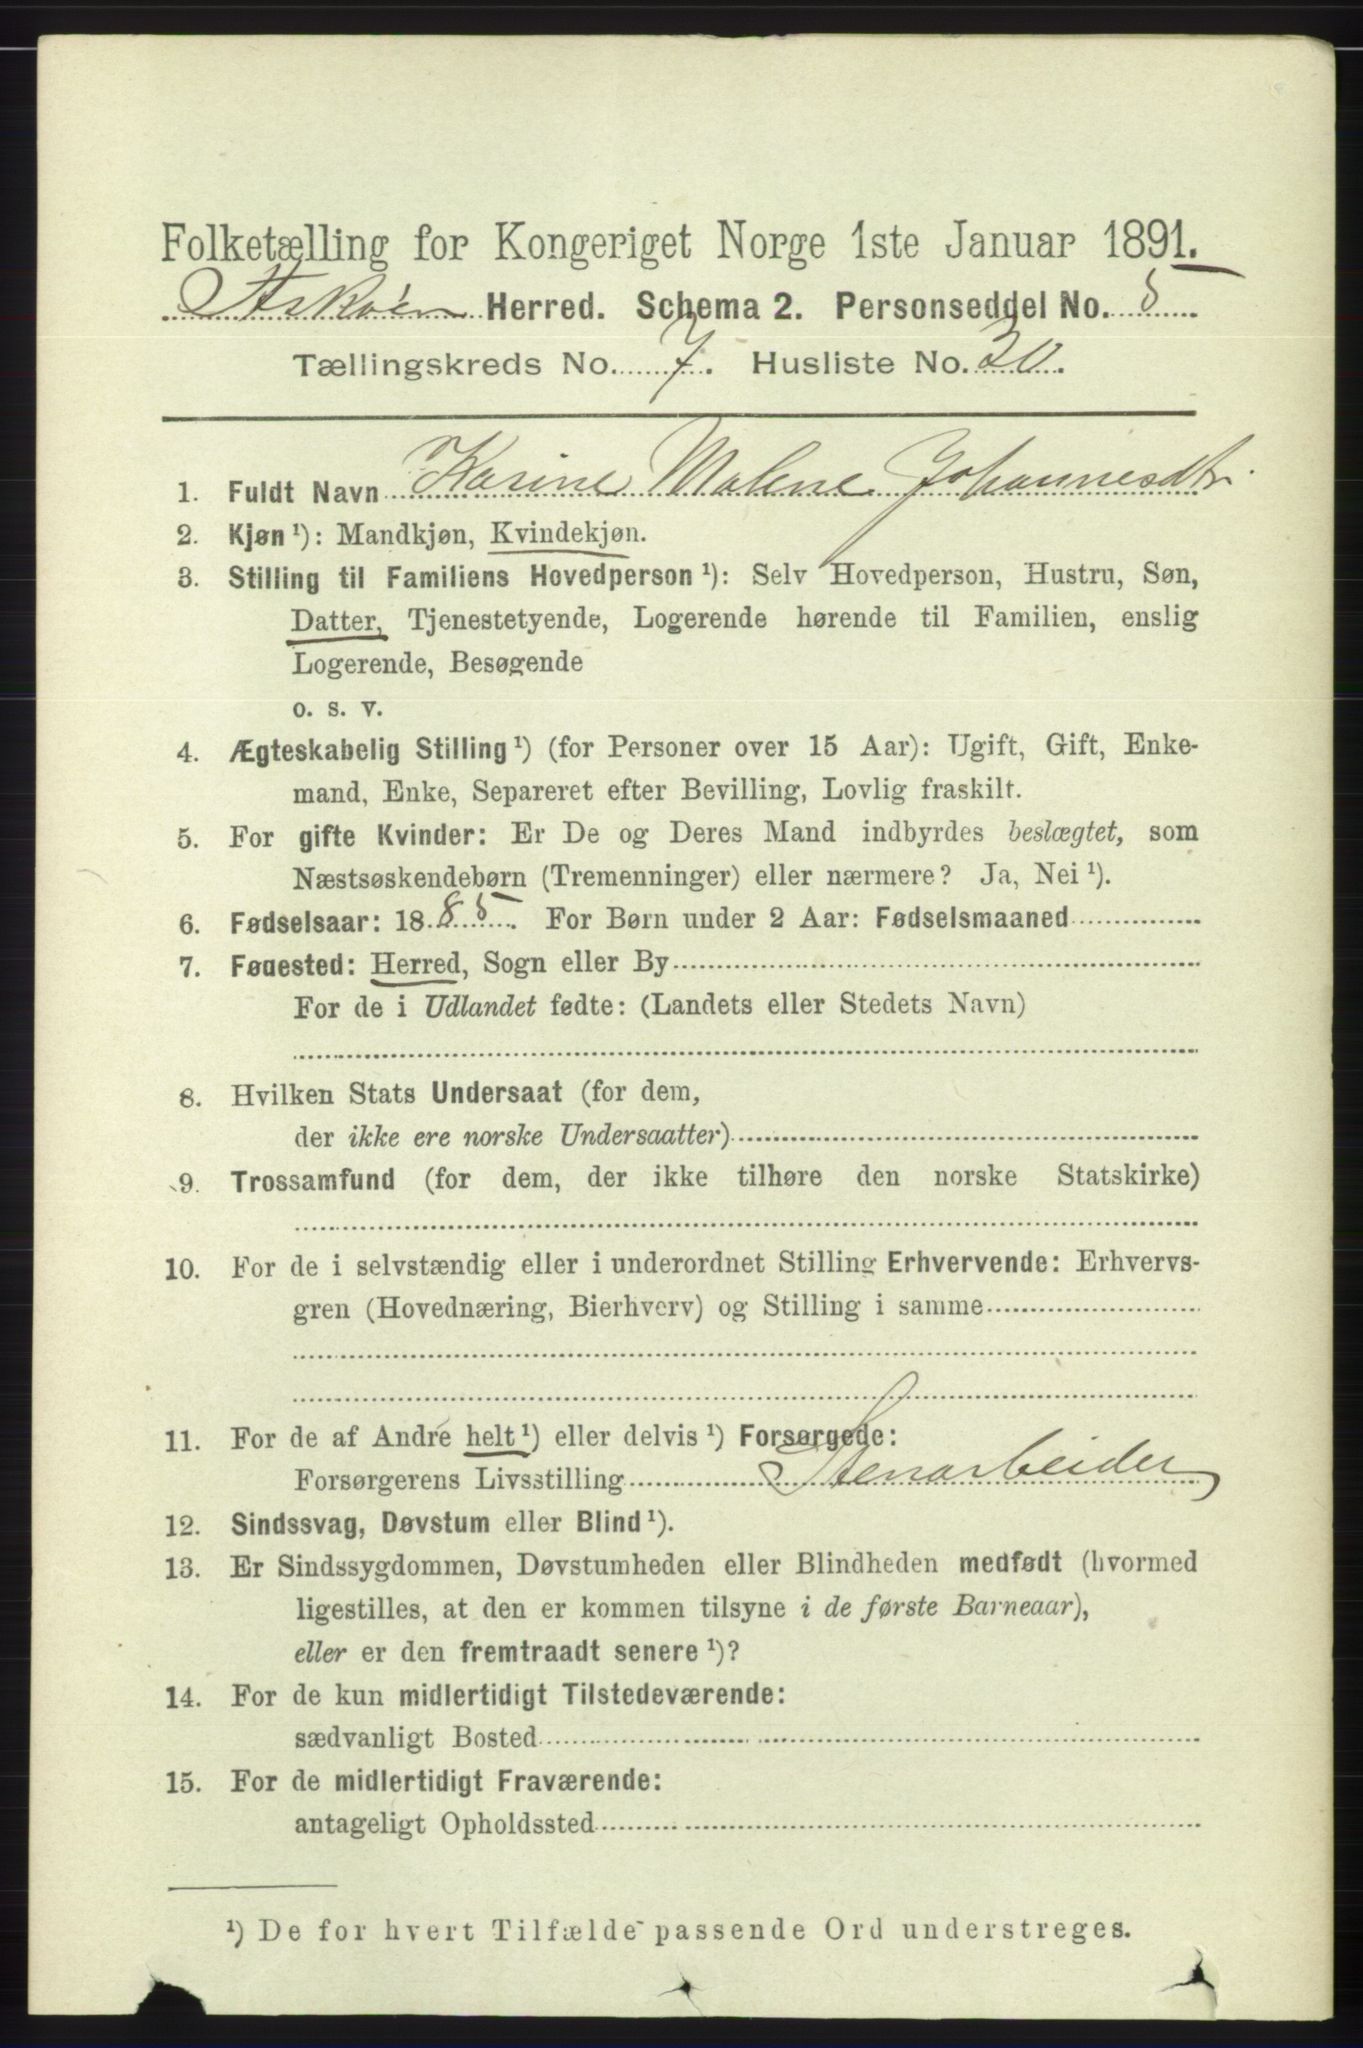 Folketælling for Kongeriget Norge 1ste Januar 1891.
Askøen Herred. Schema 2. Personseddel No. 5
Tællingskreds No. 7. Husliste No. 30.
1. Fuldt Navn Karine Malene Johannesdtr.
2. Kjøn ¹): Mandkjøn, Kvindekjøn.
3. Stilling til Familiens Hovedperson ¹): Selv Hovedperson, Hustru, Søn,
Datter, Tjenestetyende, Logerende hørende til Familien, enslig
Logerende, Besøgende
o. s. v.
4. Ægteskabelig Stilling ¹) (for Personer over 15 Aar): Ugift, Gift, Enke-
mand, Enke, Separeret efter Bevilling, Lovlig fraskilt.
5. For gifte Kvinder: Er De og Deres Mand indbyrdes beslægtet, som
Næstsøskendebørn (Tremenninger) eller nærmere? Ja, Nei ¹).
6. Fødselsaar: 1885. For Børn under 2 Aar: Fødselsmaaned
7. Fødested: Herred, Sogn eller By
For de i Udlandet fødte: (Landets eller Stedets Navn)
8. Hvilken Stats Undersaat (for dem,
der ikke ere norske Undersaatter)
9. Trossamfund (for dem, der ikke tilhøre den norske Statskirke)
10. For de i selvstændig eller i underordnet Stilling Erhvervende: Erhvervs-
gren (Hovednæring, Bierhverv) og Stilling i samme
11. For de af Andre helt ¹) eller delvis ¹) Forsørgede:
Forsørgerens Livsstilling Stenarbeider
12. Sindssvag, Døvstum eller Blind ¹).
13. Er Sindssygdommen, Døvstumheden eller Blindheden medfødt (hvormed
ligestilles, at den er kommen tilsyne i de første Barneaar),
eller er den fremtraadt senere ¹)?
14. For de kun midlertidigt Tilstedeværende:
sædvanligt Bosted
15. For de midlertidigt Fraværende:
antageligt Opholdssted
¹) De for hvert Tilfælde passende Ord understreges.